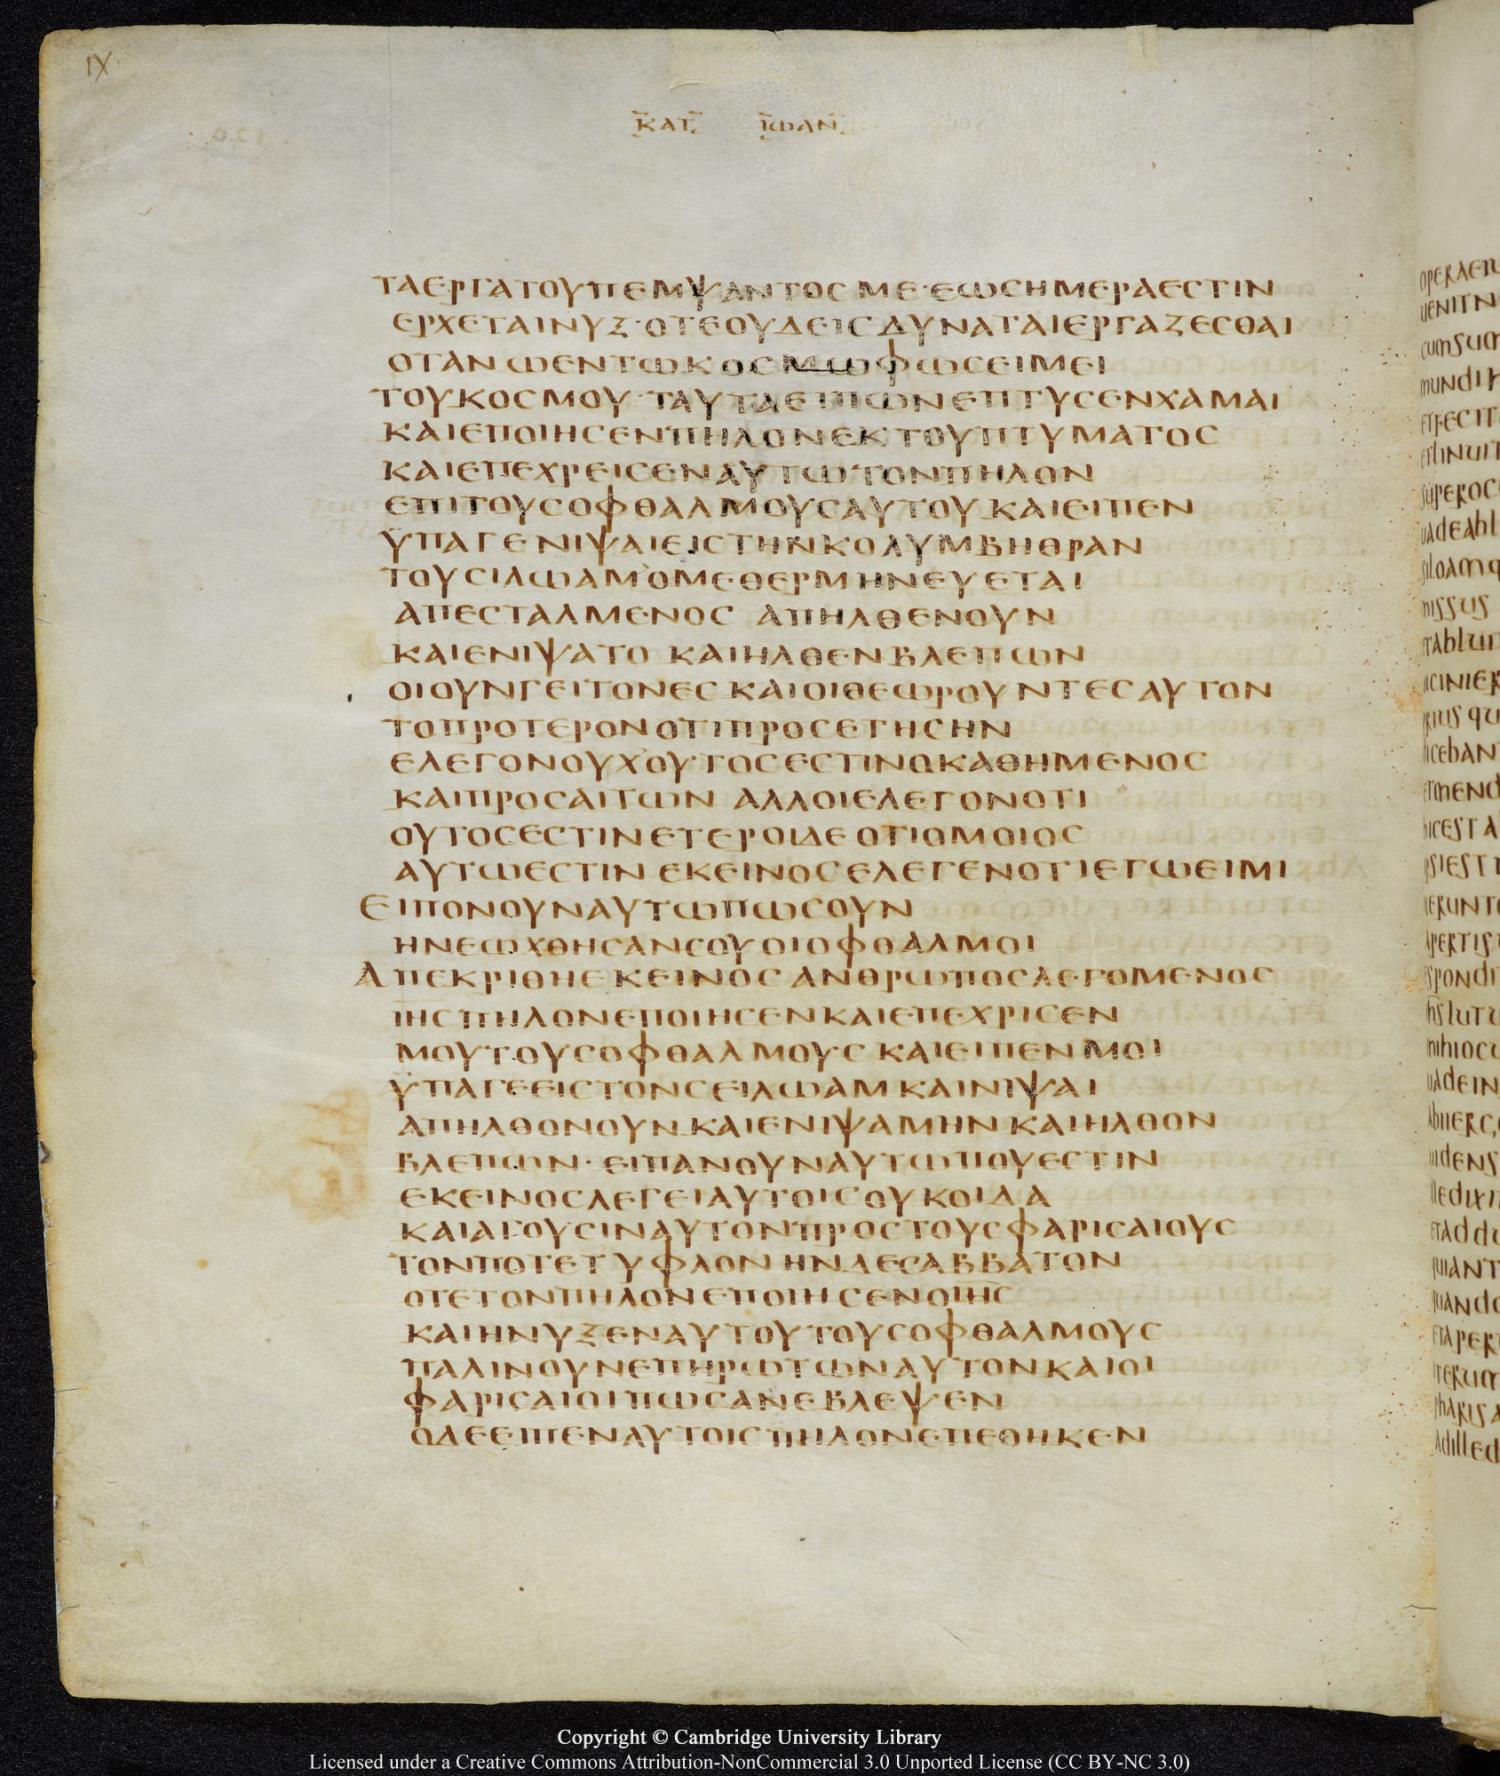 IX
ΚΑΤ ΙΩΑΝ
ΤΑΕΡΓΑΤΟΥΠΕΜΨΑΝΤΟΣ ΜΕ·ΕΩΣΗΜΕΡΑΕΣΤΙΝ
ΕΡΧΕΤΑΙΝΥΞ·ΟΤΕΟΥΔΕΙΣ ΔΥΝΑΤΑΙΕΡΓΑΖΕΣΘΑΙ
ΟΤΑΝ ΩΕΝΤΩΚΟΣΜΩΦΩΣΕΙΜΕΙ
ΤΟΥΚΟΣΜΟΥ·ΤΑΥΤΑΕΙΠΩΝΕΠΤΥΣΕΝΧΑΜΑΙ
ΚΑΙΕΠΟΙΗΣΕΝΠΗΛΟΝΕΚΤΟΥΠΤΥΜΑΤΟΣ
ΚΑΙΕΠΕΧΡΕΙΣΕΝΑΥΤΩΤΟΝΠΗΛΟΝ
ΕΠΙΤΟΥΣΟΦΘΑΛΜΟΥΣΑΥΤΟΥ ΚΑΙΕΙΠΕΝ
ΫΠΑΓΕΝΙΨΑΙΕΙΣΤΗΝΚΟΛΥΜΒΗΘΡΑΝ
ΤΟΥΣΙΛΩΑΜΟΜΕΘΕΡΜΗΝΕΥΕΤΑΙ
ΑΠΕΣΤΑΛΜΕΝΟΣ ΑΠΗΛΘΕΝΟΥΝ
ΚΑΙΕΝΙΨΑΤΟ ΚΑΙΗΛΘΕΝΒΛΕΠΩΝ
ΟΙΟΥΝΓΕΙΤΟΝΕΣ ΚΑΙΟΙΘΕΩΡΟΥΝΤΕΣΑΥΤΟΝ
ΤΟΠΡΟΤΕΡΟΝΟΤΙΠΡΟΣΕΤΗΣΗΝ
ΕΛΕΓΟΝΟΥΧΟΥΤΟΣΕΣΤΙΝΟΚΑΘΗΜΕΝΟΣ
ΚΑΙΠΡΟΣΑΙΤΩΝ ΑΛΛΟΙΕΛΕΓΟΝΟΤΙ
ΟΥΤΟΣΕΣΤΙΝΕΤΕΡΟΙΔΕ ΟΤΙΟΜΟΙΟΣ
ΑΥΤΩΕΣΤΙΝ ΕΚΕΙΝΟΣΕΛΕΓΕΝΟΤΙΕΓΩΕΙΜΙ
ΕΙΠΟΝΟΥΝΑΥΤΩΠΩΣΟΥΝ
ΗΝΕΩΧΘΗΣΑΝΣΟΥΟΙΟΦΘΑΛΜΟΙ
ΑΠΕΚΡΙΘΗΕΚΕΙΝΟΣ ΑΝΘΡΩΠΟΣΛΕΓΟΜΕΝΟΣ
ΙΗΣ ΠΗΛΟΝΕΠΟΙΗΣΕΝΚΑΙΕΠΕΧΡΙΣΕΝ
ΜΟΥΤΟΥΣΟΦΘΑΛΜΟΥΣ ΚΑΙΕΙΠΕΝΜΟΙ
ΫΠΑΓΕΕΙΣΤΟΝΣΕΙΛΩΑΜ ΚΑΙΝΙΨΑΙ
ΑΠΗΛΘΟΝΟΥΝΚΑΙΕΝΙΨΑΜΗΝ ΚΑΙΗΛΘΟΝ
ΒΛΕΠΩΝ·ΕΙΠΑΝΟΥΝΑΥΤΩΠΟΥΕΣΤΙΝ
ΕΚΕΙΝΟΣΛΕΓΕΙΑΥΤΟΙΣΟΥΚΟΙΔΑ
ΚΑΙΑΓΟΥΣΙΝΑΥΤΟΝΠΡΟΣΤΟΥΣΦΑΡΙΣΑΙΟΥΣ
ΤΟΝΠΟΤΕΤΥΦΛΟΝ ΗΝΔΕΣΑΒΒΑΤΟΝ
ΟΤΕΤΟΝΠΗΛΟΝΕΠΟΙΗΣΕΝΟΙΗΣ
ΚΑΙΗΝΥΞΕΝΑΥΤΟΥΤΟΥΣΟΦΘΑΛΜΟΥΣ
ΠΑΛΙΝΟΥΝΕΠΗΡΩΤΩΝΑΥΤΟΝΚΑΙΟΙ
ΦΑΡΙΣΑΙΟΙΠΩΣΑΝΕΒΛΕΨΕΝ
ΟΔΕΕΙΠΕΝΑΥΤΟΙΣΠΗΛΟΝΕΠΕΘΗΚΕΝ
Copyright © Cambridge University Library
Licensed under a Creative Commons Attribution-NonCommercial 3.0 Unported License (CC BY-NC 3.0)